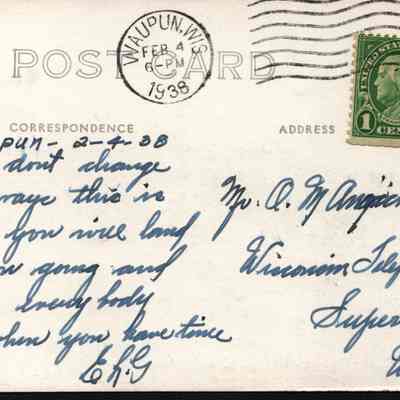 WAUPUN, WIS.
FEB 4
6-PM
1938
POST CARD
UNITED STATES
1 CENT
CORRESPONDENCE
ADDRESS
PUN - 2-4-38
dont change
ways this is
you will land
going and
every body
when you have time
E.L.G
Mr. A. M
Wisconsin Tele
Super
W